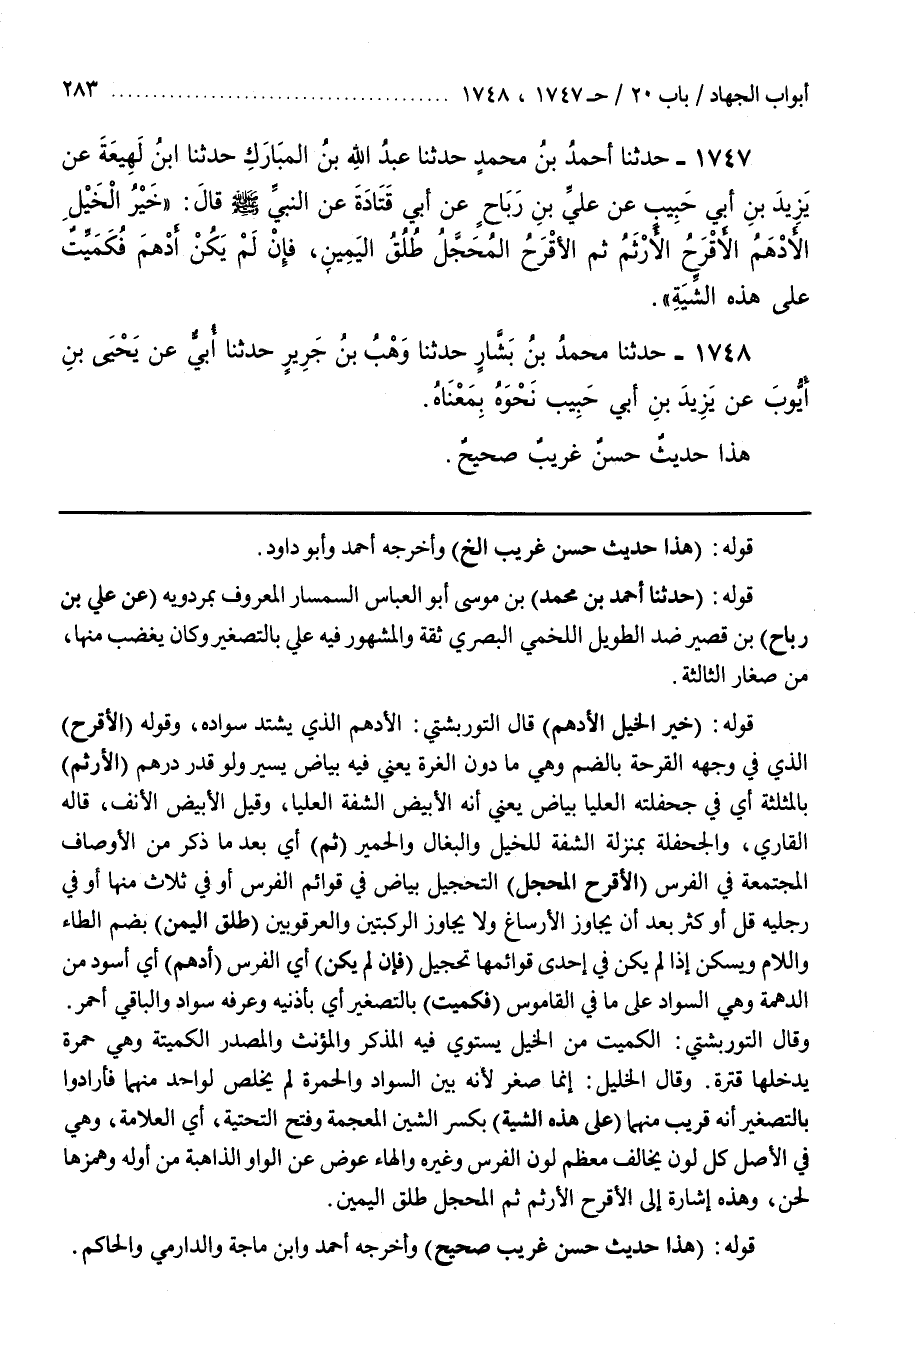 أبواب الجهاد / باب ٢٠ / حـ ١٧٤٧ ، ١٧٤٨ ........................................ ٢٨٣
١٧٤٧ ـ حدثنا أحمدُ بنُ محمدٍ حدثنا عبدُ اللهِ بنُ المبَارَكِ حدثنا ابنُ لَهِيعَةَ عن
يَزِيدَ بنِ أبي حَبِيبٍ عن عليِّ بنِ رَبَاحٍ عن أبي قَتَادَةَ عن النبيِّ ﷺ قالَ: «خَيْرُ الْخَيْلِ
الأَدْهَمُ الأَقْرَحُ الأَرْثَمُ ثم الأقْرَحُ المُحَجَّلُ طُلُقُ اليَمِينِ، فإِنْ لَمْ يَكُنْ أَدْهمَ فَكُمَيْتٌ
على هذه الشِّيَةِ».
١٧٤٨ ـ حدثنا محمدُ بنُ بَشَّارٍ حدثنا وَهْبُ بنُ جَرِيرٍ حدثنا أُبيُّ عن يَحْيَى بنِ
أَيُّوبَ عن يَزِيدَ بنِ أبي حَبِيبٍ نَحْوَهُ بِمَعْنَاهُ.
هذا حديثٌ حسنٌ غريبٌ صحيحٌ.
قوله: (هذا حديث حسن غريب الخ) وأخرجه أحمد وأبو داود.
قوله: (حدثنا أحمد بن محمد) بن موسى أبو العباس السمسار المعروف بمردويه (عن علي بن
رباح) بن قصير ضد الطويل اللخمي البصري ثقة والمشهور فيه علي بالتصغير وكان يغضب منها،
من صغار الثالثة.
قوله: (خير الخيل الأدهم) قال التوربشتي: الأدهم الذي يشتد سواده، وقوله (الأقرح)
الذي في وجهه القرحة بالضم وهي ما دون الغرة يعني فيه بياض يسير ولو قدر درهم (الأرثم)
بالمثلثة أي في جحفلته العليا بياض يعني أنه الأبيض الشفة العليا، وقيل الأبيض الأنف، قاله
القاري، والجحفلة بمنزلة الشفة للخيل والبغال والحمير (ثم) أي بعد ما ذكر من الأوصاف
المجتمعة في الفرس (الأقرح المحجل) التحجيل بياض في قوائم الفرس أو في ثلاث منها أو في
رجليه قل أو كثر بعد أن يجاوز الأرساغ ولا يجاوز الركبتين والعرقوبين (طلق اليمن) بضم الطاء
واللام ويسكن إذا لم يكن في إحدى قوائمها تحجيل (فإن لم يكن) أي الفرس (أدهم) أي أسود من
الدهمة وهي السواد على ما في القاموس (فكميت) بالتصغير أي بأذنيه وعرفه سواد والباقي أحمر.
وقال التوربشتي: الكميت من الخيل يستوي فيه المذكر والمؤنث والمصدر الكميتة وهي حمرة
يدخلها قترة. وقال الخليل: إنما صغر لأنه بين السواد والحمرة لم يخلص لواحد منهما فأرادوا
بالتصغير أنه قريب منهما (على هذه الشية) بكسر الشين المعجمة وفتح التحتية، أي العلامة، وهي
في الأصل كل لون يخالف معظم لون الفرس وغيره والهاء عوض عن الواو الذاهبة من أوله وهمزها
لحن، وهذه إشارة إلى الأقرح الأرثم ثم المحجل طلق اليمين.
قوله: (هذا حديث حسن غريب صحيح) وأخرجه أحمد وابن ماجة والدارمي والحاكم.